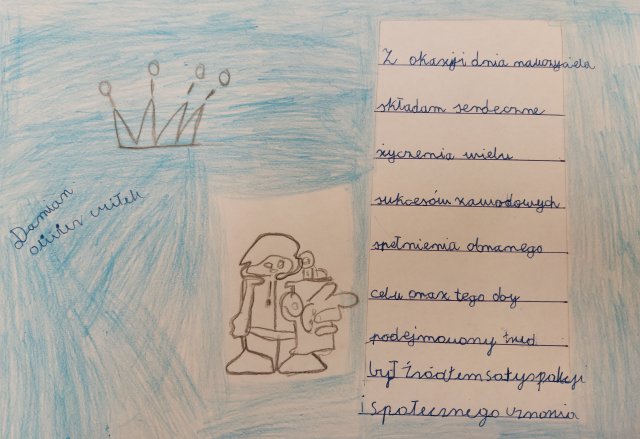 Z okazji dnia nauczyciela
składam serdeczne
życzenia wielu
sukcesów zawodowych
spełnienia obranego
celu oraz tego aby
podejmowany trud
był źródłem satyspakcji
i społecznego uznania
Damian